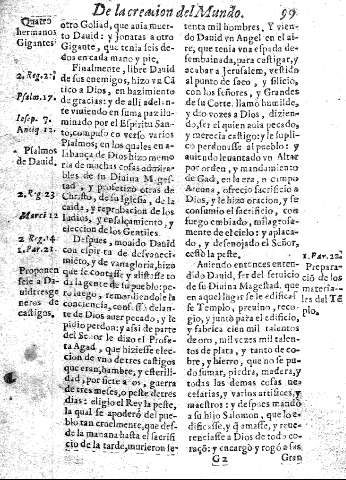 De la creacion del Mundo. 99
Quatro
hermanos
Gigantes
2. Reg. 21.
Psalm. 17.
Iosep. 7.
Antiq. 12.
Psalmos
de Dauid.
2. Reg. 23
Marci 12
2 Reg. 24
1. Par. 21.
Proponen
sele a Da-
uid tres ge
neros de
castigos.
otro Goliad, que auia muer
to Dauid: y Ionatas a otro
Gigante, que tenia seis de-
dos en cada mano y pie.
Finalmente, libre Dauid
de sus enemigos, hizo vn Cã
tico a Dios, en hazimiento
de gracias: y de alli adelan-
te viuiendo en suma paz ilu-
minado por el Espiritu San-
to, compuso en verso varios
Psalmos, en los quales en a-
labança de Dios hizo memo
ria de muchas cosas admira-
bles de su Diuina Magest-
tad, y profetizò otras de
Christo, de su Iglesia, de la
caida, y reprobacion de los
Iudios, y ensalçamiento, y
eleccion de los Gentiles.
Despues, mouido Dauid
con espiritu de desvaneci-
mieto, y de vanagloria, hizo
que se contasse y alistasse to
da la gente de su pueblo: pe
ro luego, remordiendole la
conciencia, confessò delan-
te de Dios auer pecado, y le
pidio perdon: y assi de parte
del Señor le dixo el Profe-
ta Agad, que hiziesse elec-
cion de vno de tres castigos
que eran, hambre, y esterili-
dad, por siete años, guerra
de tres meses, o peste de tres
dias: eligio el Rey la peste,
la qual se apoderò del pue-
blo tan cruelmente, que des-
de la mañana hasta el sacrifi
cio de la tarde, murieron se-
tenta mil hombres. Y vien-
do Dauid vn Angel en el ai-
re, que tenia vna espada de-
sembainada, para castigar, y
acabar a Ierusalem, vestido
al punto de saco, y silicio,
con los señores, y Grandes
de su Corte. llamò humilde,
y dio vozes a Dios, dizien-
do, ser el quien auia pecado,
y merecia castigo: y le supli-
cò perdonasse al pueblo: y
auiendo leuantado vn Altar
por orden, y mandamiento
de Gad, en la era, ò campo
Areuna, ofrecio sacrificio a
Dios, y le hizo oracion, y se
consumio el sacrificio, con
fuego embiado, milagrosa-
mente de el cielo: y aplaca-
do, y desenojado el Señor,
cessò la peste.
Auiendo entonces enten-
dido Dauid, ser del seruicio
de su Diuina Magestad, que
en aquel lugar se le edificas
se Templo, preuino, reco-
gio, y juntò para el edificio,
y fabrica cien mil talentos
de oro, mil vezes mil talen-
tos de plata, y tanto de co-
bre, y hierro, que no se pu-
do sumar, piedra, madera, y
todas las demas cosas ne-
cesarias, y varios artifices, y
maestros: y despues mandò
a su hijo Salomon, que lo e-
dificasse, y q̃ amasse, y reue-
renciasse a Dios de todo co-
raçõ: y encargò y rogò a sus
1. Par. 22.
Prepara-
ciõ de los
materia-
les del Tẽ
plo.
G 2 Gran